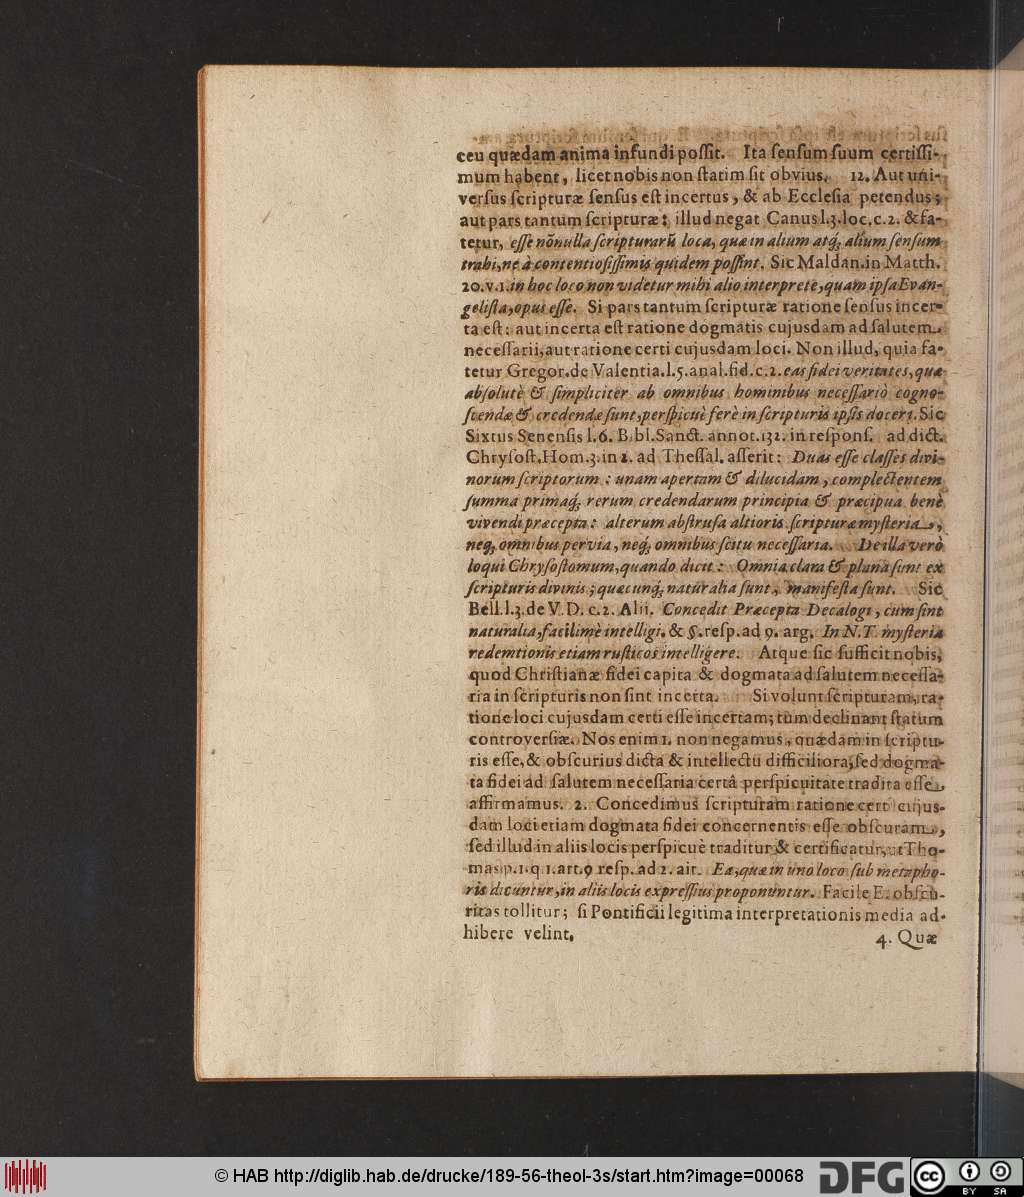 ceu quædam anima infundi poſſit. Ita ſenſum ſuum certiſſi-
mum habent, licet nobis non ſtatim ſit obvius. 12. Aut uni-
verſus ſcripturæ ſenſus eſt incertus, & ab Eccleſia petendus;
aut pars tantum ſcripturæ: illud negat Canus l.3. loc. c. 2. & fa-
tetur, eſſe nõnulla ſcripturarũ loca, quæ in alium atq́; aliũm ſenſum
trahi, ne à contentioſiſſimis quidem poſſint. Sic Maldan. in Matth.
20. v. 1. in hoc loco non videtur mihi alio interprete, quam ipſa Evan-
geliſta, opus eſſe. Si pars tantum ſcripturæ ratione ſenſus incer-
ta eſt: aut incerta eſt ratione dogmatis cujusdam ad ſalutem
neceſſarii, aut ratione certi cujusdam loci. Non illud, quia fa-
tetur Gregor. de Valentia. l. 5. anal. fid. c. 2. eas fidei veritates, quæ
abſolutè & ſimpliciter ab omnibus hominibus neceſſariò cogno-
ſcendæ & credendæ ſunt, perſpicuè ferè in ſcripturis ipſis doceri. Sic
Sixtus Senenſis l. 6. Bibl. Sanct. annot. 132. in reſponſ. ad dict.
Chryſoſt. Hom. 3. in 2. ad Theſſal. aſſerit: Duas eſſe claſſes divi-
norum ſcriptorum: unam apertam & dilucidam, complectentem
ſumma primaq́; rerum credendarum principia & præcipua benè
vivendi præcepta: alterum abſtruſa altioris ſcripturæ myſteria,
neq́; omnibus pervia, neq́; omnibus ſcitu neceſſaria. De illa verò
loqui Chryſoſtomum, quando dicit: Omnia clara & plana ſunt ex
ſcripturis divinis; quæcunq́; naturalia ſunt, manifeſta ſunt. Sic
Bell. l. 3. de V. D. c. 2. Alii. Concedit Præcepta Decalogi, cum ſint
naturalia, facilimè intelligi. & §. reſp. ad 9. arg. In N. T. myſteria
redemtionis etiam ruſticos intelligere. Atque ſic ſufficit nobis,
quod Chriſtianæ fidei capita & dogmata ad ſalutem neceſſa-
ria in ſcripturis non ſint incerta. Si volunt ſcripturam, ra-
tione loci cujusdam certi eſſe incertam; tum declinant ſtatum
controverſiæ. Nos enim 1. non negamus, quædam in ſcriptu-
ris eſſe, & obſcurius dicta & intellectu difficiliora; ſed dogma-
ta fidei ad ſalutem neceſſaria certâ perſpicuitate tradita eſſe,
affirmamus. 2. Concedimus ſcripturam ratione certi cujus-
dam loci etiam dogmata fidei concernentis eſſe obſcuram,
ſed illud in aliis locis perſpicuè traditur & certificatur, ut Tho-
mas p. 1. q. 1. art. 9 reſp. ad 2. ait. Ea, quæ in uno loco ſub metapho-
ris dicuntur, in aliis locis expreſſius proponuntur. Facile E. obſcu-
ritas tollitur; ſi Pontificii legitima interpretationis media ad-
hibere velint.
4. Quæ
© HAB http://diglib.hab.de/drucke/189-56-theol-3s/start.htm?image=00068
DFG
cc
BY SA